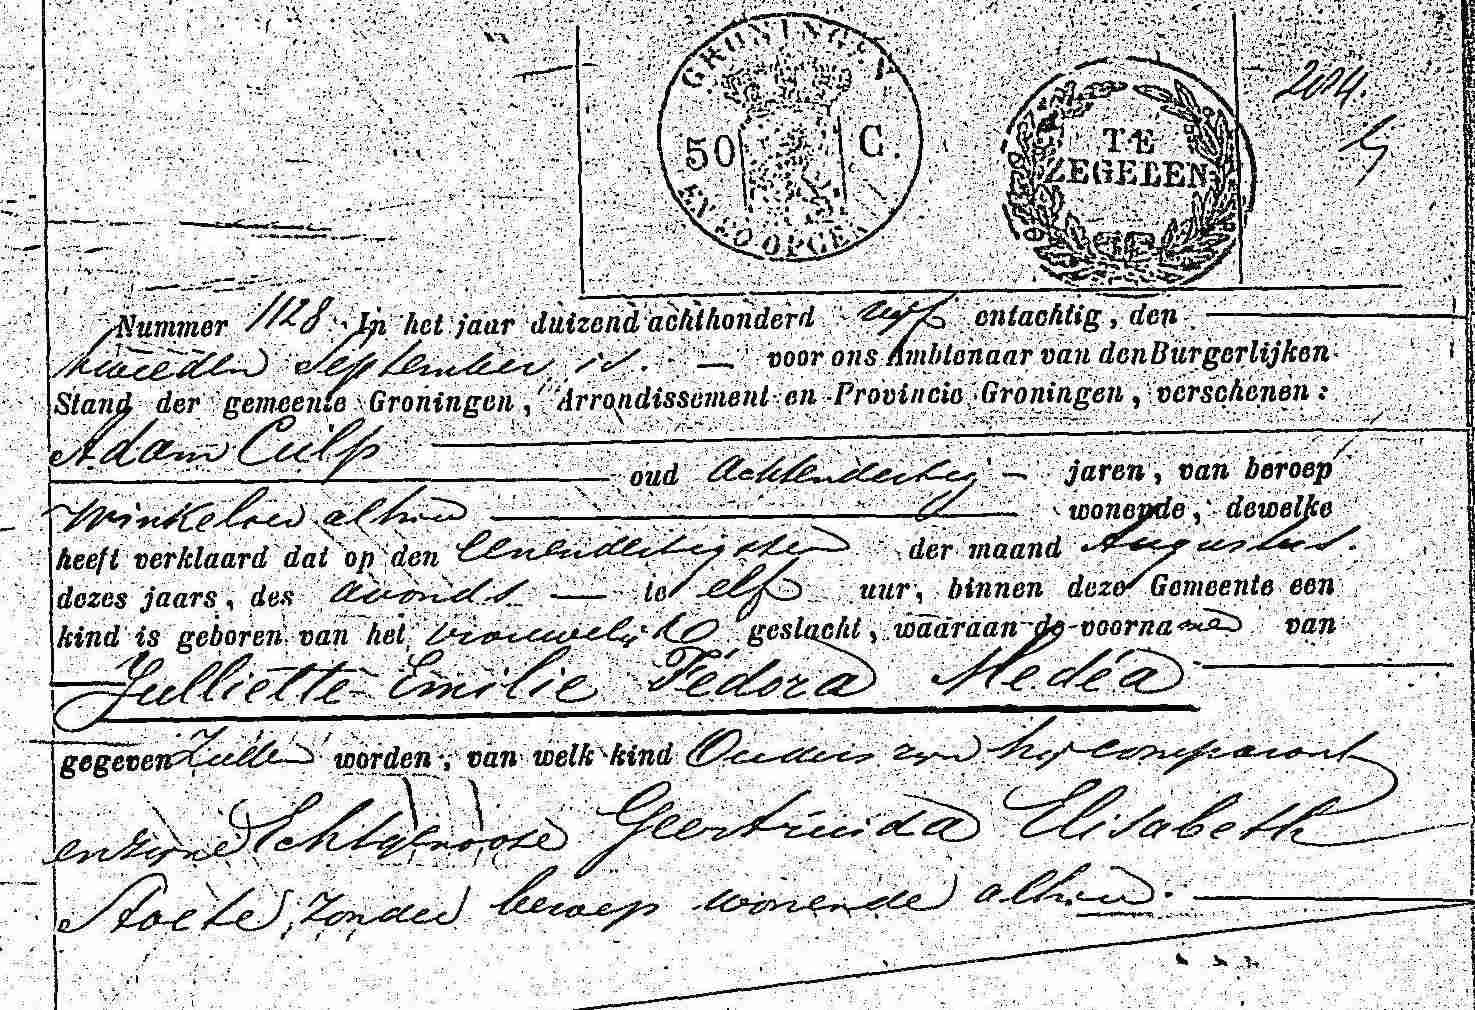 GRONINGEN
50 C.
EN 20 OPCEN
TE
ZEGELEN
2014.
Nummer 1128. In het jaar duizend achthonderd vijf entachtig, den
tweeden September is. voor ons Ambtenaar van den Burgerlijken
Stand der gemeente Groningen, Arrondissement en Provincie Groningen, verschenen:
Adam Culp
oud Achtendertig jaren, van beroep
Winkelier alhier wonende, dewelke
heeft verklaard dat op den eenendertigsten der maand Augustus.
dezes jaars, des avonds te elf uur, binnen deze Gemeente een
kind is geboren van het vrouwelijke geslacht, waaraan de voornamen van
Julliette Emilie Fédora Medéa
gegeven zullen worden, van welk kind Ouders zijn hij comparant
en zijne Echtgenoote Geertruida Elisabeth
Stoete, zonder beroep wonende alhier.